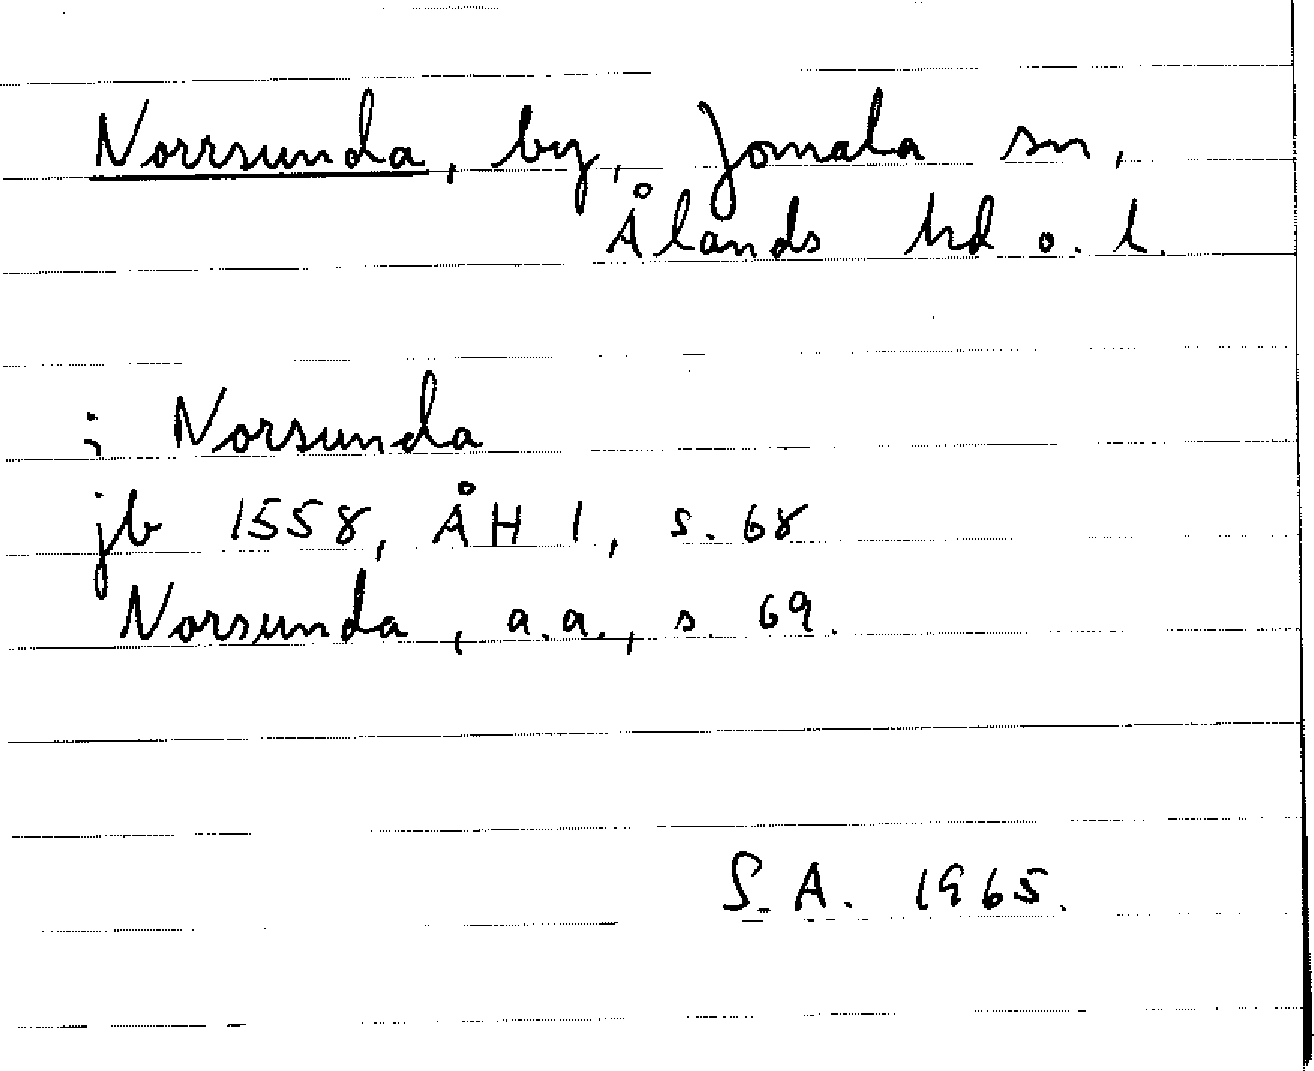 Norrsunda, by, Jomala sn,
Ålands hd o. l.
i Norsunda
jb 1558, ÅH 1, s. 68
Norsunda, a.a., s. 69.
S.A. 1965.